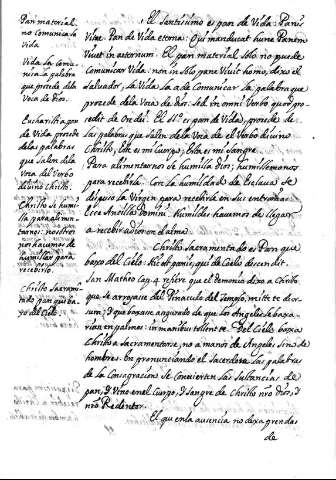 Pan material
no Comunica la
Vida
Vida la Comu
nica la palabra
que procede de la
Voca de Dios.
Eucharistia pan
de Vida procede
de las palabras
que Salen de la
Voca del Verbo
divino Christo.
Christo se humi
lla para alimen
tarnos: nosotros
nos hauemos de
humillar para
recebirlo.
Christo Sacramen
tado pan que ba
xo del Cielo
El Santissimo es pan de Vida: Panis
Vitae. Pan de Vida eterna: Qui manducat hunc Panem
Vivet in aeternum. El pan material Solo no puede
Comunicar Vida: non in Solo pane Vivit homo, dixo el
Salvador, la Vida la a de Comunicar la palabra que
procede de la Voca de Dios: Sed in omni Verbo quod pro
cedit de Ore Dei. El SSº. es pan de Vida, procede de
las palabras que Salen de la Voca de el Verbo divino
Christo, Este es mi Cuerpo, Esta es mi Sangre.
Para alimentarnos se humilla Dios; humillemonos
para recebirle. Con la humildad de Esclava se
dispuso la Virgen para recebirle en sus entrañas
Ecce Ancilla Domini. humildes hauemos de llegar
a recebir a Dios en el alma.
Christo Sacramentado es Pan que
baxo del Cielo: Hic est panis, qui de Coelo descendit.
San Matheo Cap. 4 refiere que el demonio dixo a Christo
que se arrojase del Pinaculo del Templo, mitte te deor
sum; y que baxase asegurado de que los Angeles le baxa
rian en palmas: in manibus tollent te. Del Cielo baxa
Christo a Sacramentarse, no a manos de Angeles sino de
hombres. En pronunciando el Sacerdote las palabras
de la Consagracion se Convierten las Sustancias de
pan, y Vino en el Cuerpo, y Sangre de Christo nro Dios, y
nro Redentor.
El que en la ausencia no dexa prendas
de